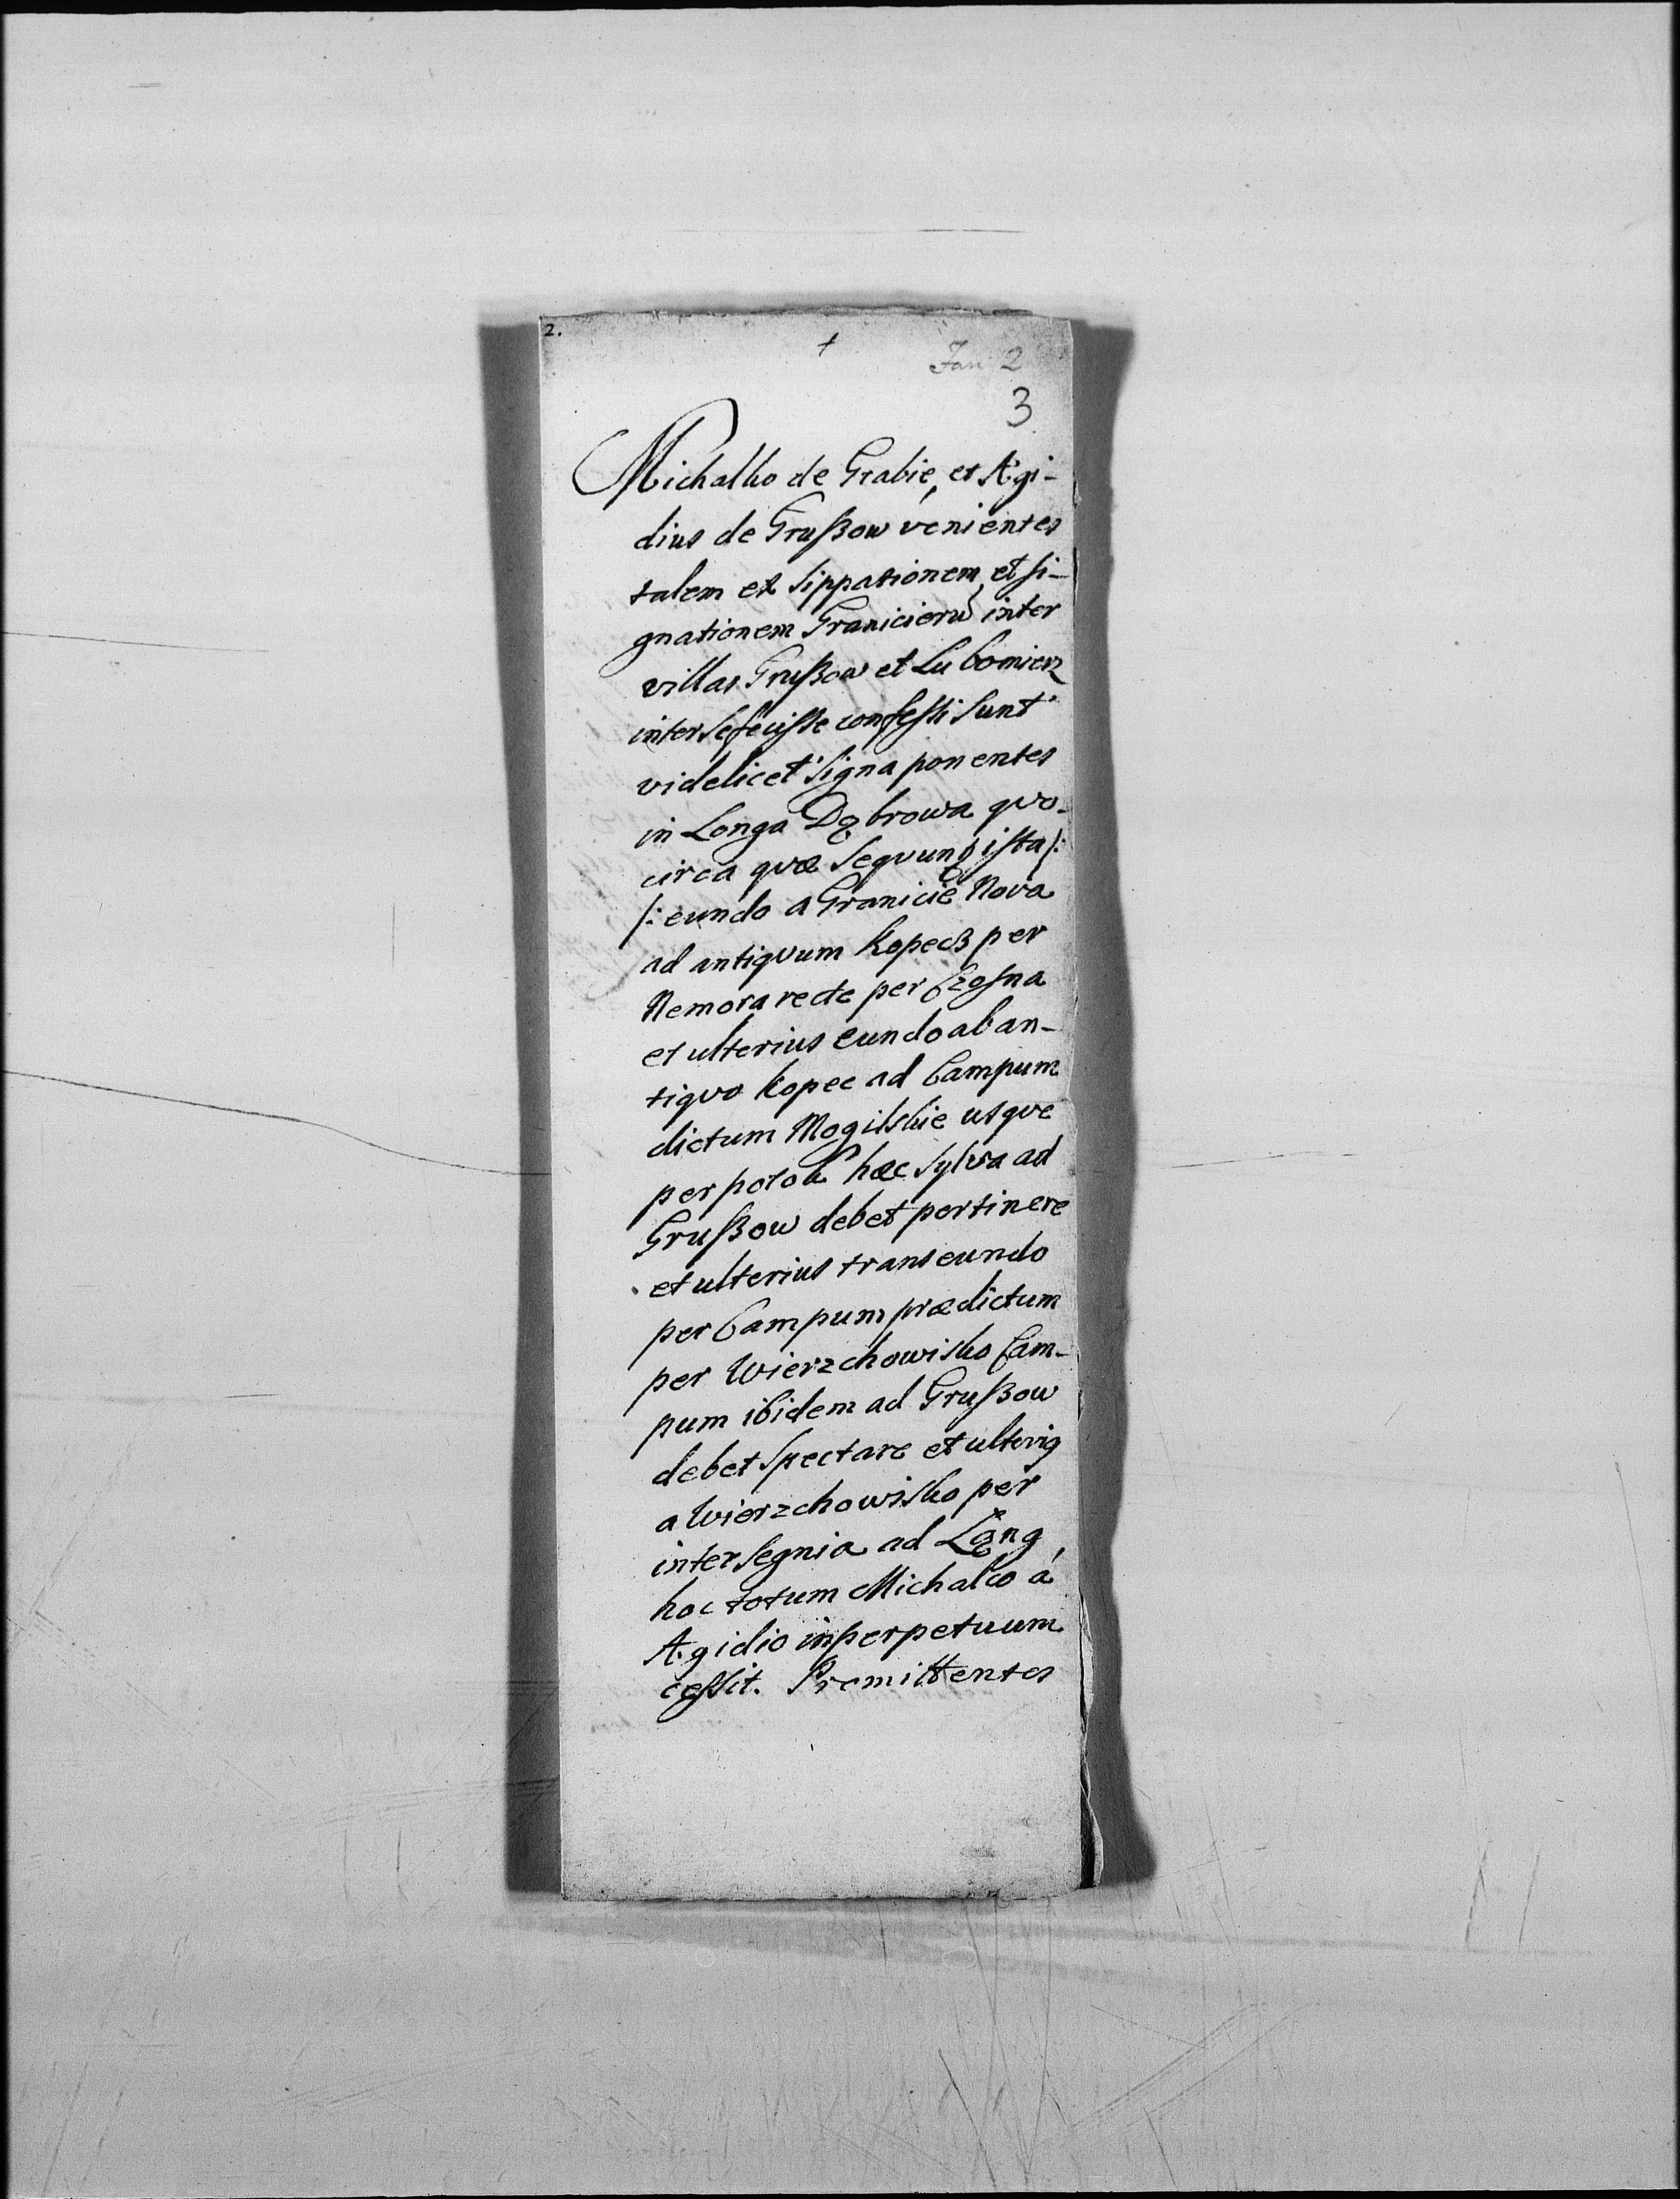 2.
+
Jan 2
3
Michalko de Grabie, et Ægi-
dius de Grußow venientes
talem et sippationem et si-
gnationem Granicieru inter
villas Grußow et Lubomierz
inter se fecisse confessi sunt
videlicet signa ponentes
in Longa Dąbrowa quo-
circa quæ sequunt ista /:
/: eundo a Granicie Nova
ad antiquum kopecz per
Nemora recte per
et ulterius eundo ab an-
tiquo kopec ad Campum
dictum Mogilskie usque
per potok hæc sylva ad
Grußow debet pertinere
et ulterius transeundo
per Campum prædictum
per Wierzchowisko Cam-
pum ibidem ad Grußow
debet spectare et ulterig
a Wierzchowisko per
intersegnia ad Ląng,
hoc totum Michalco á
Ægidio in perpetuum
cessit. Premittentes